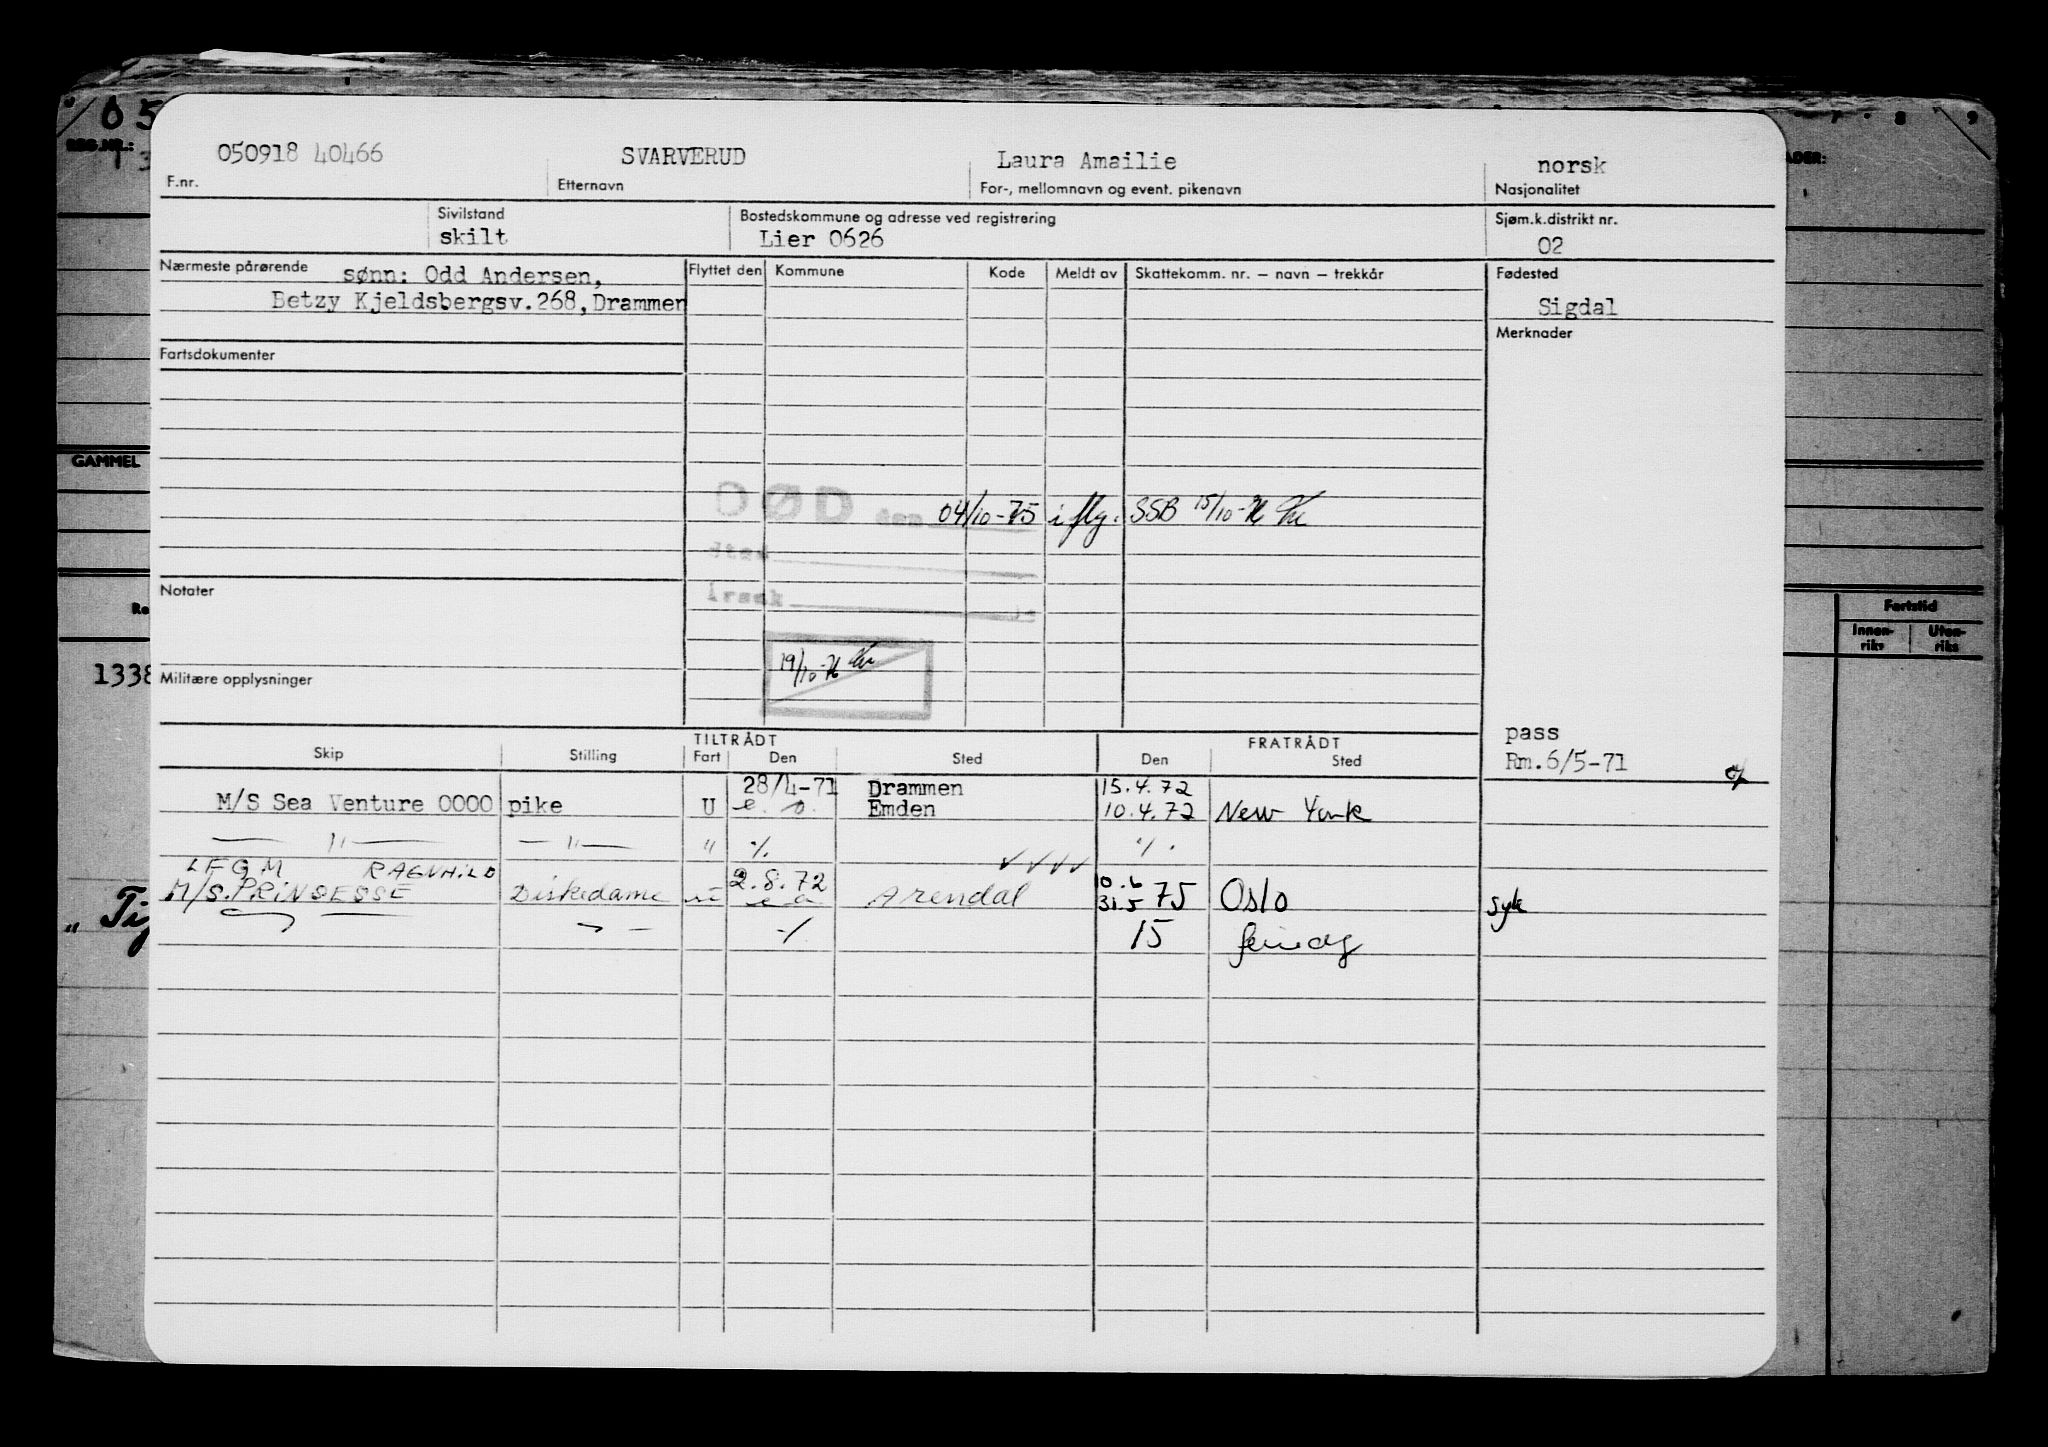 / 05
7 . 8 9
REG.NR.:
13
050918 40466 SVARVERUD Laura Amailie norsk
F.nr. Etternavn For-, mellomnavn og event. pikenavn Nasjonalitet
Sivilstand Bostedskommune og adresse ved registrering Sjøm.k.distrikt nr.
skilt Lier 0626 02
Nærmeste pårørende sønn: Odd Andersen, Flyttet den Kommune Kode Meldt av Skattekomm. nr. – navn – trekkår Fødested
Betzy Kjeldsbergsv.268, Drammen Sigdal
Merknader
Fartsdokumenter
GAMMEL
DØD den 04/10-75 iflg. SSB 15/10-76
Notater
Fartstid
Innen-riks Uten-riks
19/10-76
1338
Militære opplysninger
pass
Rm.6/5-71
TILTRÅDT FRATRÅDT
Skip Stilling Fart Den Sted Den Sted
28/4-71 Drammen 15.4.72
M/S Sea Venture 0000 pike U e.o. Emden 10.4.72 New York
— " — — " — " %. % .
LFGM RAGNHILD 2.8.72 10.6
M/S.PRINSESSE Diskedame u e o Arendal 31.5 75 Oslo syk
15